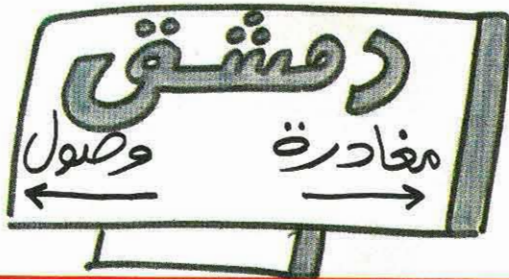 دمشق
مغادرة وصول